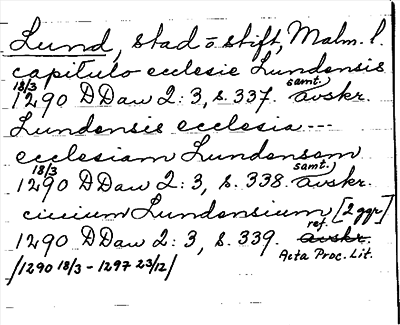 Lund, stad o stift, Malm. l.
capitulo ecclesie Lundensis
18/3 samt.
1290 DDan 2:3, s. 337. avskr.
Lundensis ecclesia ---
ecclesiam Lundensem
18/3 samt.
1290 DDan 2:3, s. 338. avskr.
civium Lundensium [2 ggr]
ref.
1290 DDan 2:3, s. 339. avskr.
/1290 18/3 - 1297 23/12/ Acta Proc. Lit.